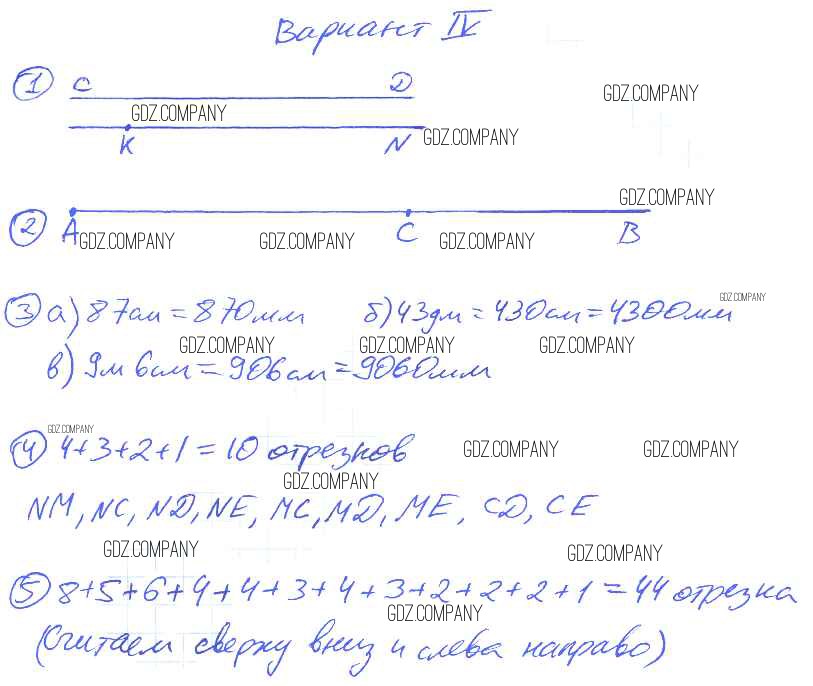 Вариант IV
1 C D
GDZ.COMPANY
GDZ.COMPANY
K N
GDZ.COMPANY
GDZ.COMPANY
2 A C B
GDZ.COMPANY GDZ.COMPANY GDZ.COMPANY
GDZ.COMPANY
3 а) 87см = 870мм б) 43дм = 430см = 4300мм
GDZ.COMPANY GDZ.COMPANY GDZ.COMPANY
в) 9м 6см = 906см = 9060мм
GDZ.COMPANY
4 4+3+2+1 = 10 отрезков
GDZ.COMPANY GDZ.COMPANY
GDZ.COMPANY
NM, NC, ND, NE, MC, MD, ME, CD, CE
GDZ.COMPANY GDZ.COMPANY
5 8+5+6+4+4+3+4+3+2+2+2+1 = 44 отрезка
GDZ.COMPANY
(Считаем сверху вниз и слева направо)